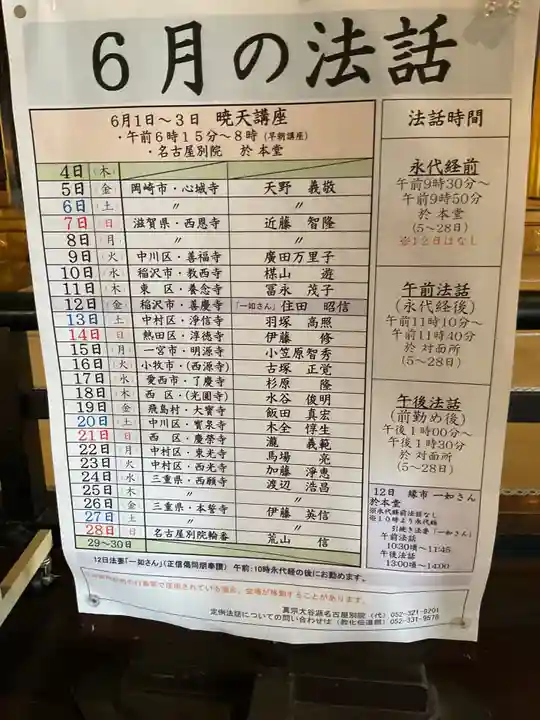 6月の法話
6月1日～3日 暁天講座
・午前6時15分～8時(早朝講座)
・名古屋別院 於 本堂
4日(木)
5日(金) 岡崎市・心城寺 天野 義敬
6日(土) 〃 〃
7日(日) 滋賀県・西恩寺 近藤 智隆
8日(月) 〃 〃
9日(火) 中川区・善福寺 廣田万里子
10日(水) 稲沢市・教西寺 椹山 遊
11日(木) 東 区・養念寺 冨永 茂子
12日(金) 稲沢市・善慶寺 「一如さん」住田 昭信
13日(土) 中村区・浄信寺 羽塚 高照
14日(日) 熱田区・淳徳寺 伊藤 修
15日(月) 一宮市・明源寺 小笠原智秀
16日(火) 小牧市・(西源寺) 古塚 正覚
17日(水) 愛西市・了慶寺 杉原 隆
18日(木) 西 区・(光圓寺) 水谷 俊明
19日(金) 飛島村・大寳寺 飯田 真宏
20日(土) 中川区・寳泉寺 木全 惇生
21日(日) 西 区・慶榮寺 瀧 義範
22日(月) 中村区・東光寺 馬場 亮
23日(火) 中村区・西光寺 加藤 淨恵
24日(水) 三重県・西願寺 渡辺 浩昌
25日(木) 〃 〃
26日(金) 三重県・本誓寺 伊藤 英信
27日(土) 〃
28日(日) 名古屋別院輪番 荒山 信
29~30日
法話時間
永代経前
午前9時30分～
午前9時50分
於 本堂
(5～28日)
※12日はなし
午前法話
(永代経後)
午前11時10分～
午前11時40分
於 対面所
(5～28日)
午後法話
(前勤め後)
午後1時00分～
午後1時30分
於 対面所
(5～28日)
12日 縁市 一如さん
於本堂
※永代経前法話なし
※10時より永代経
引続き法要「一如さん」
午前法話
10:30~11:45
午後法話
13:00~14:00
12日法要「一如さん」(正信偈同朋奉讃) 午前:10時永代経の後にお勤めます。
行事等で使用されている場合、会場が移動することがあります。
真宗大谷派名古屋別院(代) 052-321-9201
定例法話についての問い合わせは(教化伝道部)052-331-9578